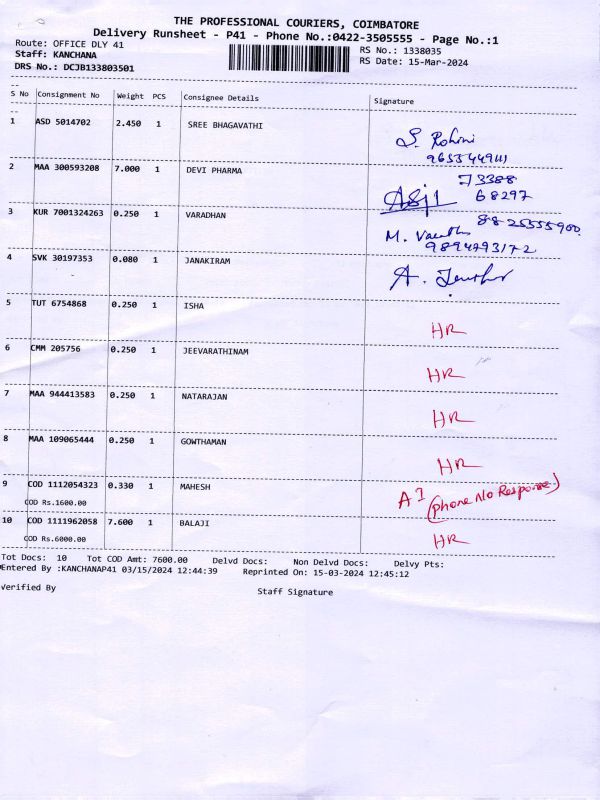 THE PROFESSIONAL COURIERS, COIMBATORE
Delivery Runsheet - P41 - Phone No.:0422-3505555 - Page No.:1
Route: OFFICE DLY 41
RS No.: 1338035
Staff: KANCHANA
RS Date: 15-Mar-2024
DRS No.: DCJB133803501
S No Consignment No Weight PCS Consignee Details Signature
1 ASD 5014702 2.450 1 SREE BHAGAVATHI
S. Rohini
2 MAA 300593208 7.000 1 DEVI PHARMA
73388
68297
3 KUR 7001324263 0.250 1 VARADHAN
8825555900
M.
9894793172
4 SVK 30197353 0.080 1 JANAKIRAM
A.
5 TUT 6754868 0.250 1 ISHA
HR
6 CMM 205756 0.250 1 JEEVARATHINAM
HR
7 MAA 944413583 0.250 1 NATARAJAN
HR
8 MAA 109065444 0.250 1 GOWTHAMAN
HR
9 COD 1112054323 0.330 1 MAHESH
(phone No Response.)
COD Rs.1600.00
10 COD 1111962058 7.600 1 BALAJI
HR
COD Rs.6000.00
Tot Docs: 10 Tot COD Amt: 7600.00 Delvd Docs: Non Delvd Docs: Delvy Pts:
Entered By :KANCHANAP41 03/15/2024 12:44:39 Reprinted On: 15-03-2024 12:45:12
Verified By
Staff Signature